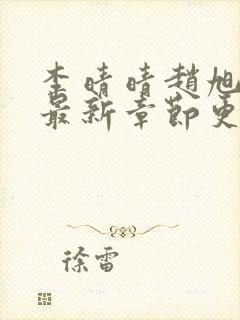 李晴晴趙旭
最新章節更
徐雷